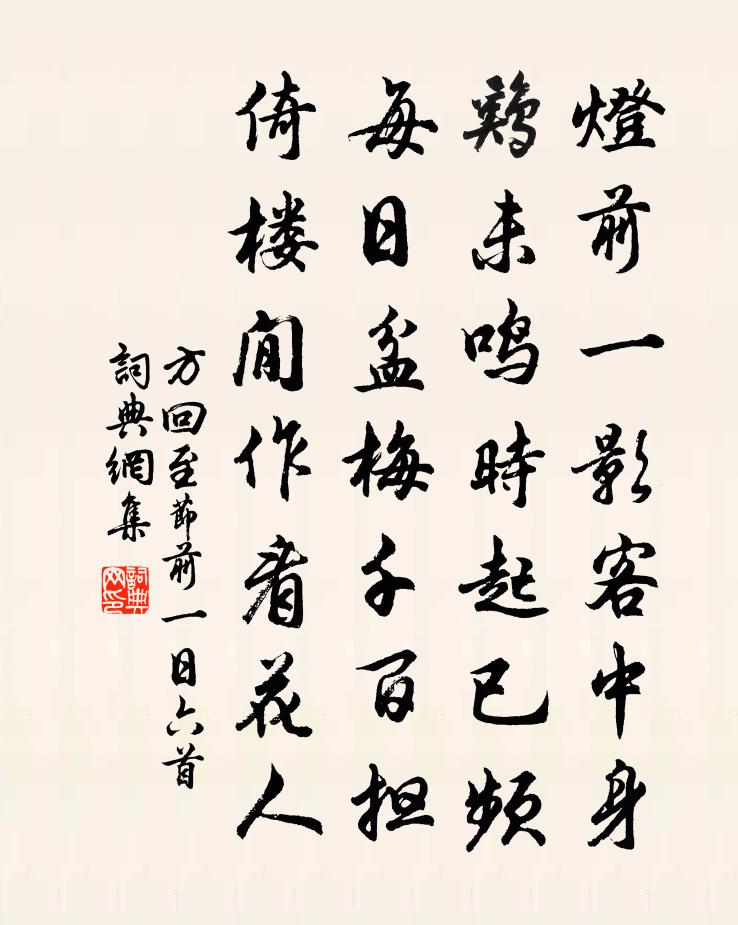 燈前一影客中身
鷄未鳴時起已頻
每日盆梅千百担
倚楼閒作看花人
方回至節前一日六首
詞典網集
詞典網印